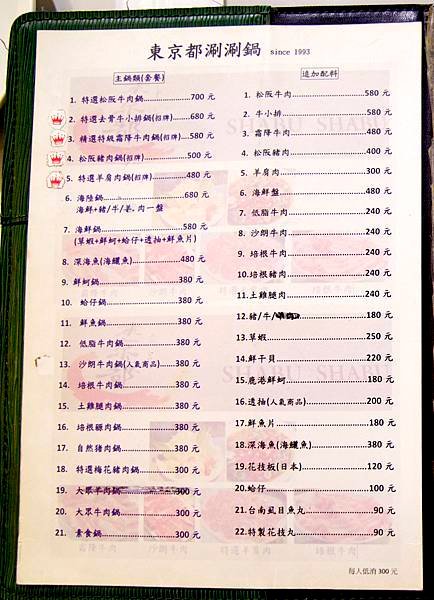 東京都涮涮鍋 since 1993
主鍋類(套餐)
1. 特選松阪牛肉鍋..................700 元
2. 特選去骨牛小排鍋(招牌)........680 元
3. 精選特級霜降牛肉鍋(招牌)....580 元
4. 松阪豬肉鍋(招牌)..............500 元
5. 特選羊肩肉鍋(招牌)............480 元
6. 海陸鍋............................680 元
海鮮+豬/牛/羊. 肉一盤
7. 海鮮鍋............................580 元
(草蝦+鮮蚵+蛤仔+透抽+鮮魚片)
8. 深海魚(海鱺魚)..................480 元
9. 鮮蚵鍋............................380 元
10. 蛤仔鍋..........................380 元
11. 鮮魚鍋..........................380 元
12. 低脂牛肉鍋......................380 元
13. 沙朗牛肉鍋(人氣商品)........380 元
14. 培根牛肉鍋......................380 元
15. 土雞腿肉鍋......................380 元
16. 培根豚肉鍋......................380 元
17. 自然豬肉鍋......................380 元
18. 特選梅花豬肉鍋................300 元
19. 大眾羊肉鍋......................300 元
20. 大眾牛肉鍋......................300 元
21. 素食鍋..........................300 元
追加配料
1. 松阪牛肉..........................580 元
2. 牛小排............................580 元
3. 霜降牛肉..........................480 元
4. 松阪豬肉..........................400 元
5. 羊肩肉............................300 元
6. 海鮮盤............................480 元
7. 低脂牛肉..........................240 元
8. 沙朗牛肉..........................240 元
9. 培根牛肉..........................240 元
10. 培根豬肉........................240 元
11. 土雞腿肉........................240 元
12. 豬/牛/..........................180 元
13. 草蝦............................250 元
14. 鮮干貝..........................220 元
15. 鹿港鮮蚵........................180 元
16. 透抽(人氣商品)................200 元
17. 鮮魚片..........................180 元
18. 深海魚(海鱺魚)................380 元
19. 花枝板(日本)..................120 元
20. 蛤仔............................100 元
21. 台南虱目魚丸....................90 元
22. 特製花枝丸......................90 元
SHABU SHABU
SHABU SHABU
霜降牛肉 沙朗牛肉 特選羊肩肉 培根牛肉
每人低消 300 元